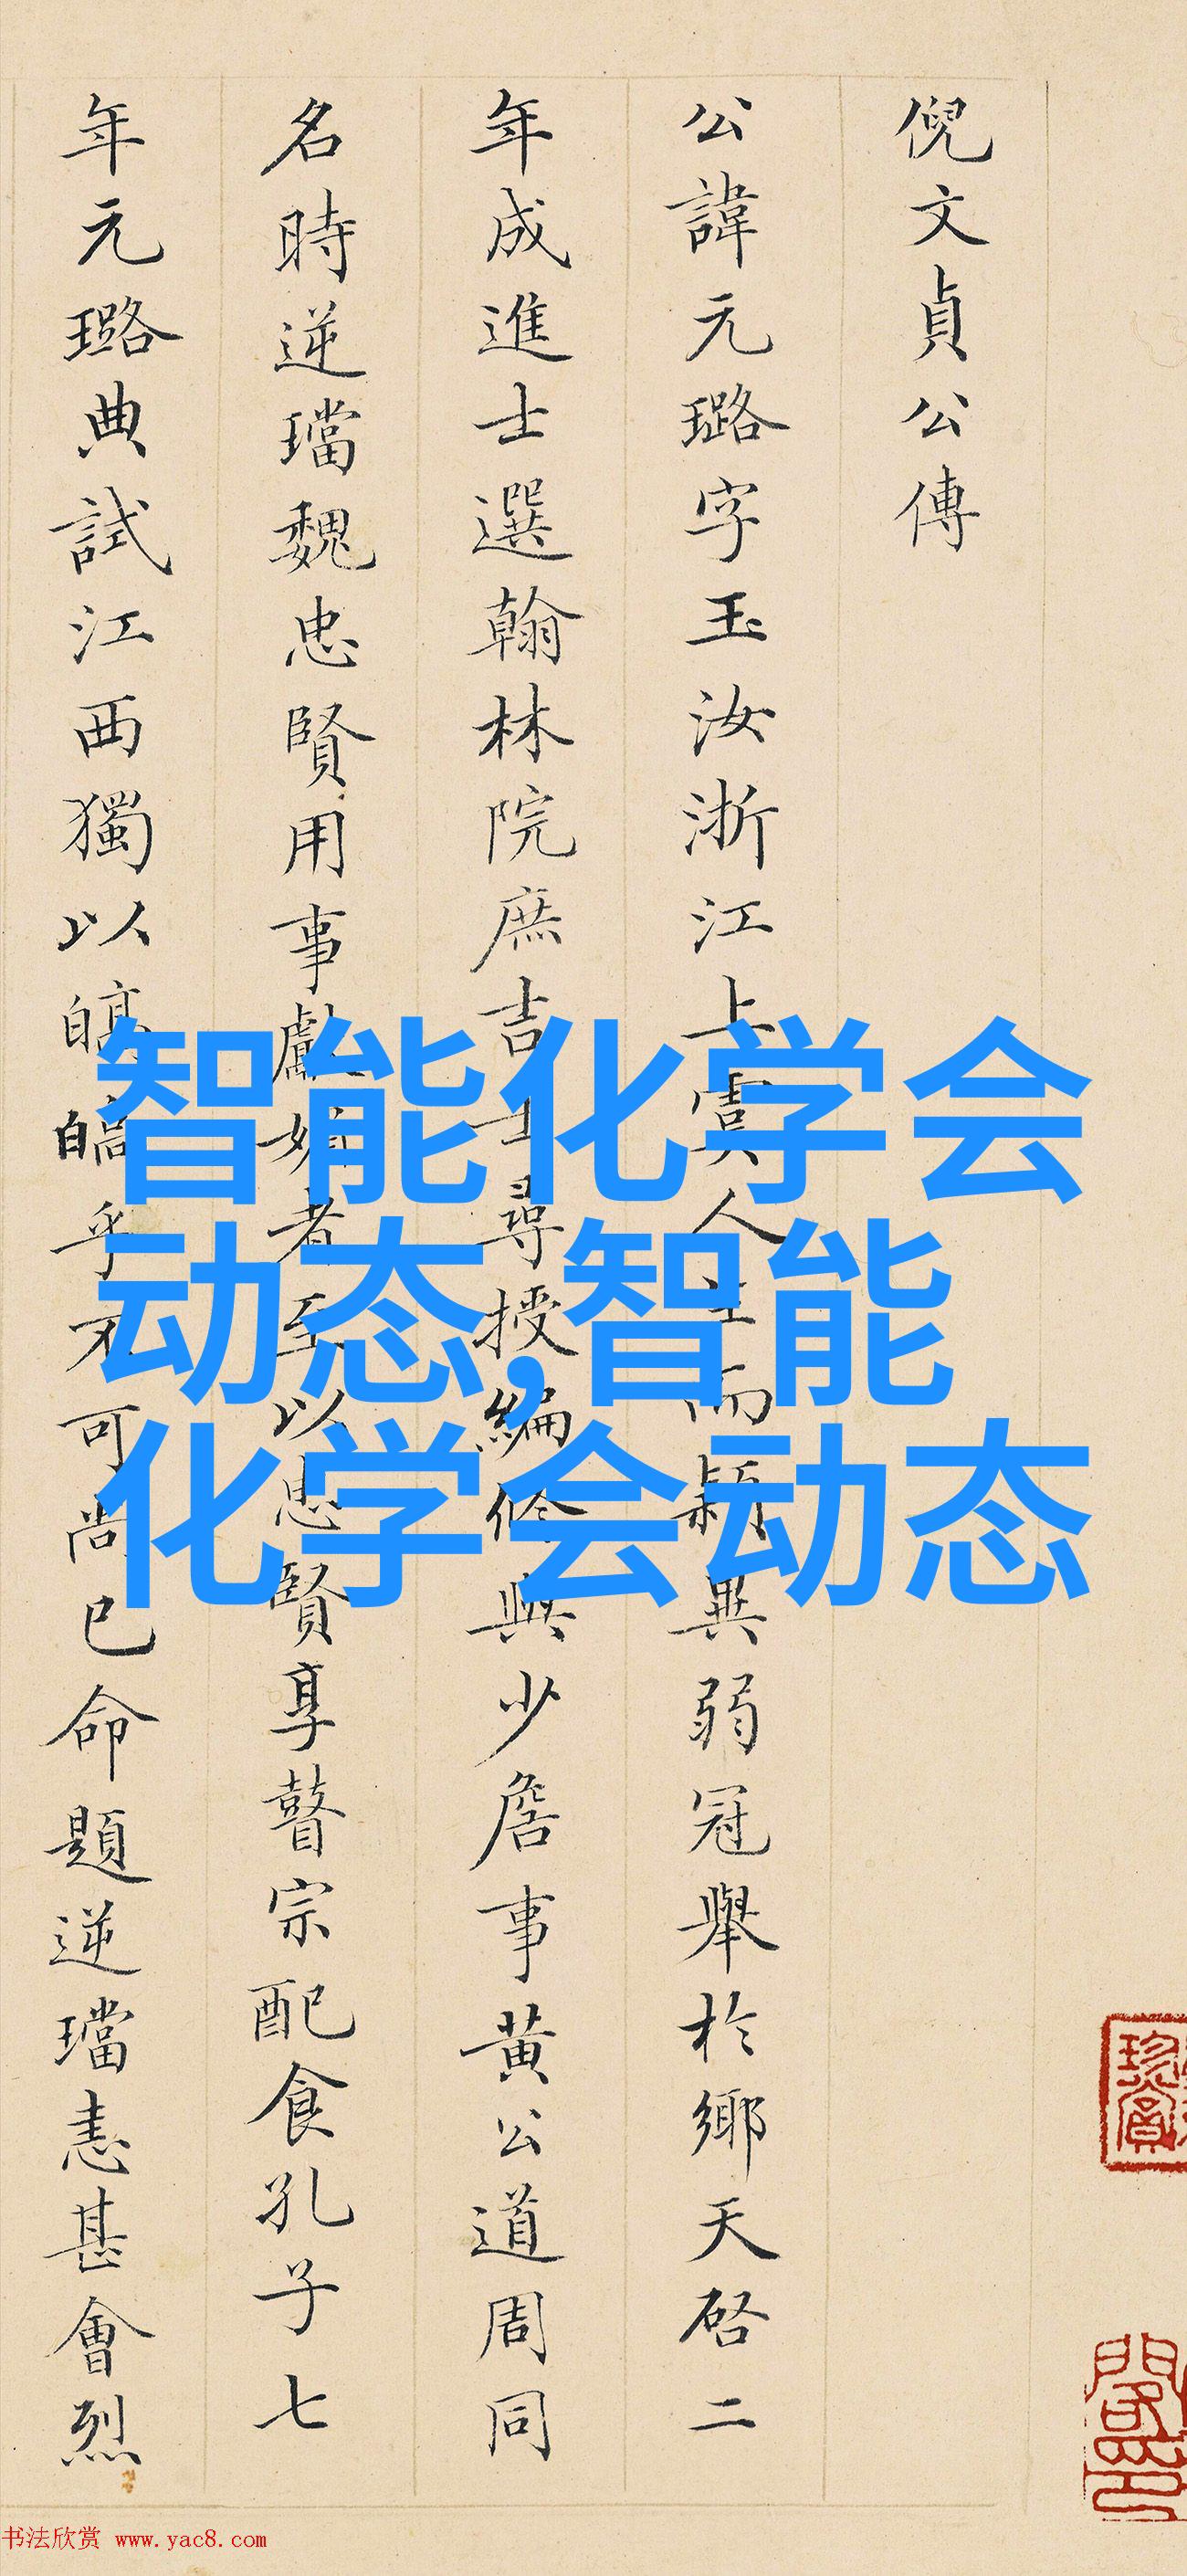 倪文貞公傳
公諱元璐字玉汝浙江上虞人生而穎異弱冠舉於鄉天啓二
年成進士選翰林院庶吉士尋授編修與少詹事黄公道周同
名時逆璫魏忠賢用事獻媚者至以忠賢享瞽宗配食孔子七
年元璐典試江西獨以皜皜乎不可尚已命題逆璫恚甚會烈
智能化学会
动态,智能
化学会动态
书法欣赏 www.yac8.com